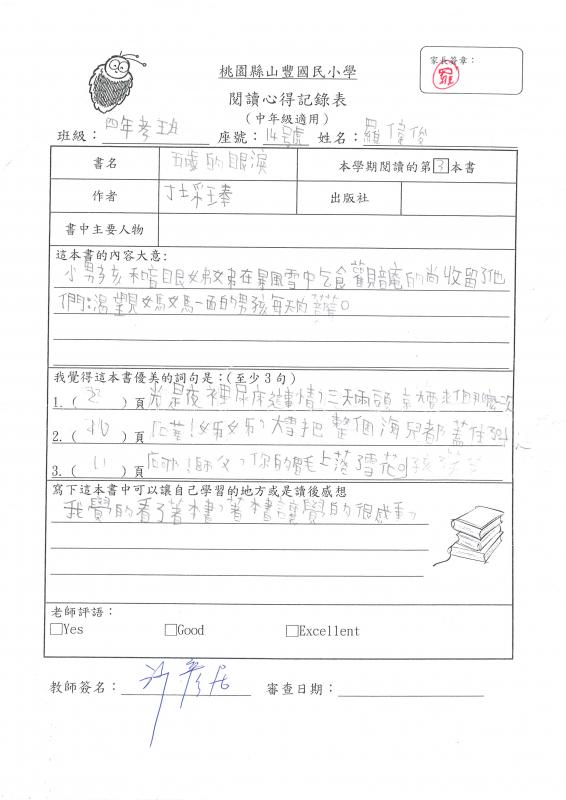 桃園縣山豐國民小學
家長簽章：
羅
閱讀心得記錄表
（中年級適用）
班級：四年孝班 座號：14號 姓名：羅偉俊
書名 五歲的眼淚 本學期閱讀的第3本書
作者 杜采臻 出版社
書中主要人物
這本書的內容大意：
小男孩和瞎眼妹妹在暴風雪中乞食觀音庵的尚收留了他
們：渴望見媽媽一面的男孩每天的
我覺得這本書優美的詞句是：(至少3句)
1. ( ) 頁 光是夜裡尿床這事情，三天兩頭
2. ( ) 頁 哇！奶奶，雪把整個海兒都蓋住
3. (11) 頁 師父，你的 上落雪花
寫下這本書中可以讓自己學習的地方或是讀後感想
我覺的看了著本書，著本書讓覺的很感動，
老師評語：
□Yes □Good □Excellent
教師簽名： 審查日期：